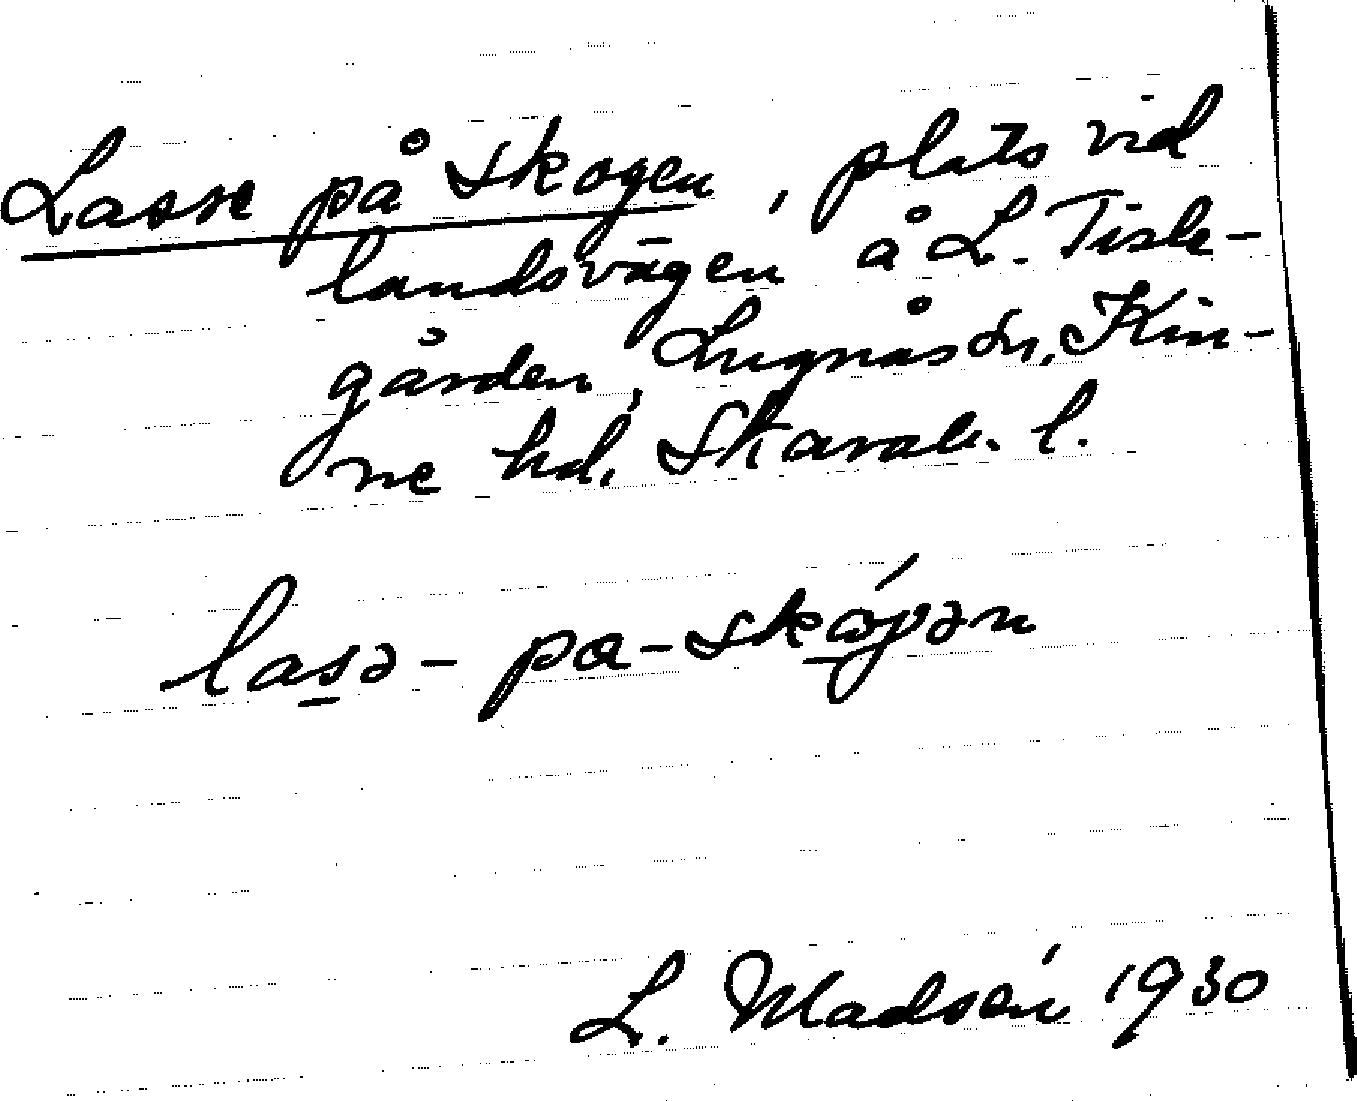 Lasse på Skogen, plats vid
landsvägen å L. Tisle-
gården, Lugnås sn, Kin-
ne hd, Skarab. l.
lasə-pa-skógən
L. Madsén 1930